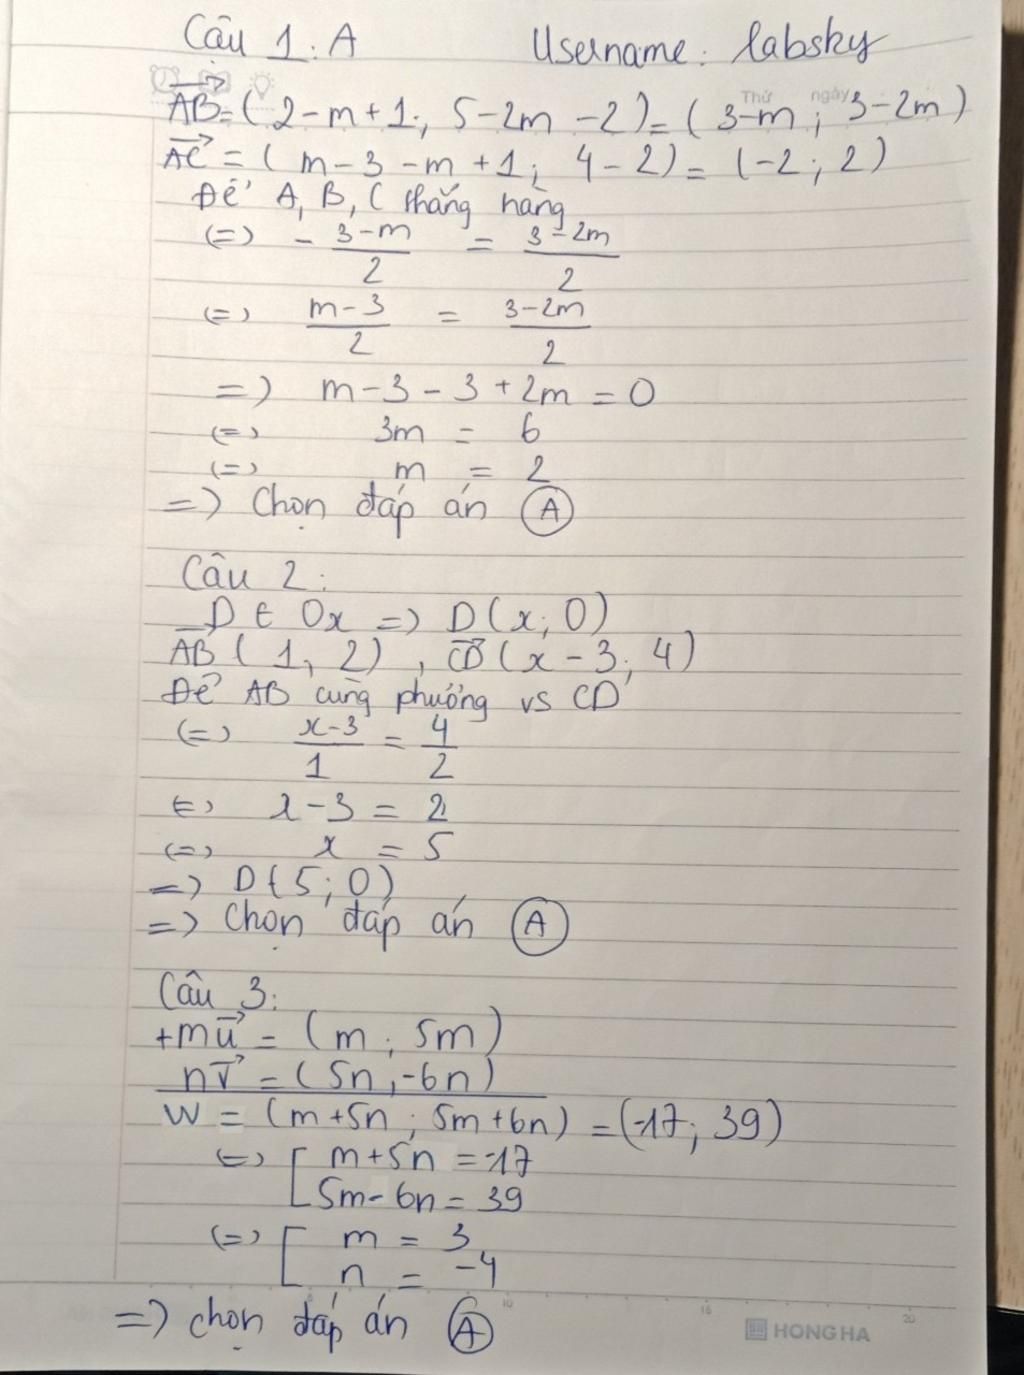 Câu 1: A Username: labsky
Thứ ngày
AB = ( 2-m+1 ; 5-2m -2) = ( 3-m ; 3-2m )
AC = ( m-3-m+1 ; 4-2) = (-2 ; 2)
Để A, B, C thẳng hàng
(=) - 3-m / 2 = 3-2m / 2
(=) m-3 / 2 = 3-2m / 2
=) m-3-3+2m = 0
(=) 3m = 6
(=) m = 2
=) Chọn đáp án A
Câu 2:
D ∈ Ox =) D(x; 0)
AB ( 1, 2) , CD (x-3; 4)
Để AB cùng phương vs CD
(=) x-3 / 1 = 4 / 2
(=) x-3 = 2
(=) x = 5
=) D(5; 0)
=) Chọn đáp án A
Câu 3:
+mu = (m ; 5m)
nv = (5n,-6n)
w = (m+5n ; 5m+6n) = (-17; 39)
(=) [ m+5n = -17
5m-6n = 39
(=) [ m = 3
n = -4
=) chọn đáp án A
10 15 20
HONG HA